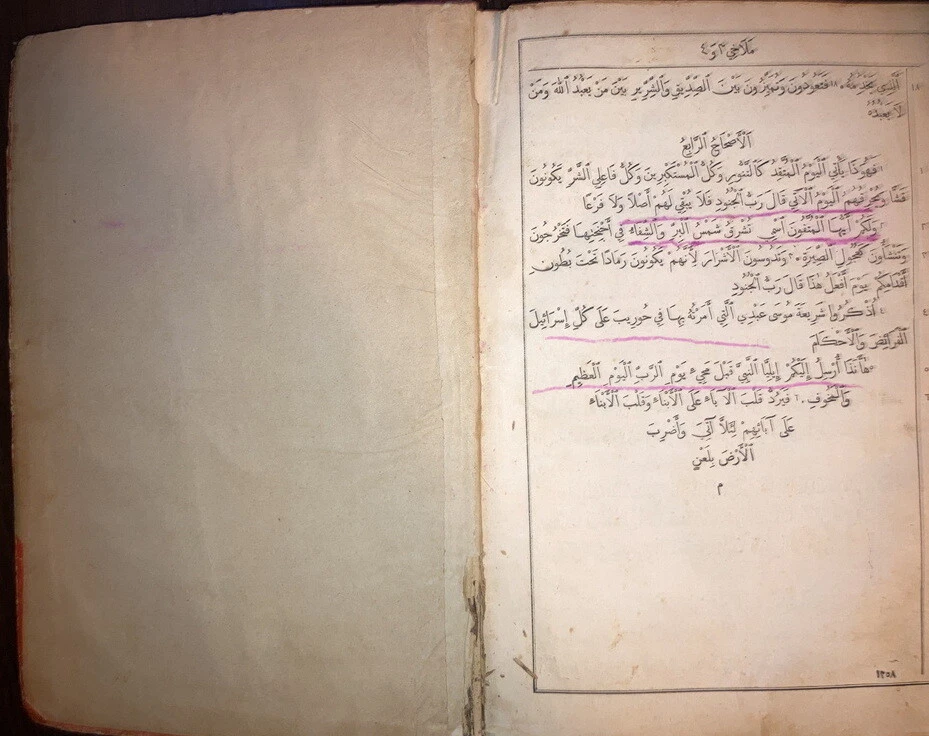 ملاخي ٣ و ٤
١٨ ٱلَّذِي يَخْدِمُهُ. ١٨ فَتَعُودُونَ وَتُمَيِّزُونَ بَيْنَ ٱلصِّدِّيقِ وَٱلشِّرِّيرِ بَيْنَ مَنْ يَعْبُدُ ٱللهَ وَمَنْ
لَا يَعْبُدُهُ
اَلْأَصْحَاحُ ٱلرَّابِعُ
١ فَهُوَذَا يَأْتِي ٱلْيَوْمُ ٱلْمُتَّقِدُ كَٱلتَّنُّورِ وَكُلُّ ٱلْمُسْتَكْبِرِينَ وَكُلُّ فَاعِلِي ٱلشَّرِّ يَكُونُونَ
قَشًّا وَيُحْرِقُهُمُ ٱلْيَوْمُ ٱلْآتِي قَالَ رَبُّ ٱلْجُنُودِ فَلَا يُبْقِي لَهُمْ أَصْلًا وَلَا فَرْعًا
٢ وَلَكُمْ أَيُّهَا ٱلْمُتَّقُونَ ٱسْمِي تُشْرِقُ شَمْسُ ٱلْبِرِّ وَٱلشِّفَاءُ فِي أَجْنِحَتِهَا فَتَخْرُجُونَ
٣ وَتَنْشَأُونَ كَعُجُولِ ٱلصِّيرَةِ. ٣ وَتَدُوسُونَ ٱلْأَشْرَارَ لِأَنَّهُمْ يَكُونُونَ رَمَادًا تَحْتَ بُطُونِ
أَقْدَامِكُمْ يَوْمَ أَفْعَلُ هٰذَا قَالَ رَبُّ ٱلْجُنُودِ
٤ ٤ اُذْكُرُوا شَرِيعَةَ مُوسَى عَبْدِي ٱلَّتِي أَمَرْتُهُ بِهَا فِي حُورِيبَ عَلَى كُلِّ إِسْرَائِيلَ
ٱلْفَرَائِضَ وَٱلْأَحْكَامَ
٥ ٥ هَأَنَذَا أُرْسِلُ إِلَيْكُمْ إِيلِيَّا ٱلنَّبِيَّ قَبْلَ مَجِيءِ يَوْمِ ٱلرَّبِّ ٱلْيَوْمِ ٱلْعَظِيمِ
٦ وَٱلْمَخُوفِ. ٦ فَيَرُدُّ قَلْبَ ٱلْآبَاءِ عَلَى ٱلْأَبْنَاءِ وَقَلْبَ ٱلْأَبْنَاءِ
عَلَى آبَائِهِمْ لِئَلَّا آتِيَ وَأَضْرِبَ
ٱلْأَرْضَ بِلَعْنٍ
م
١٢٥٨